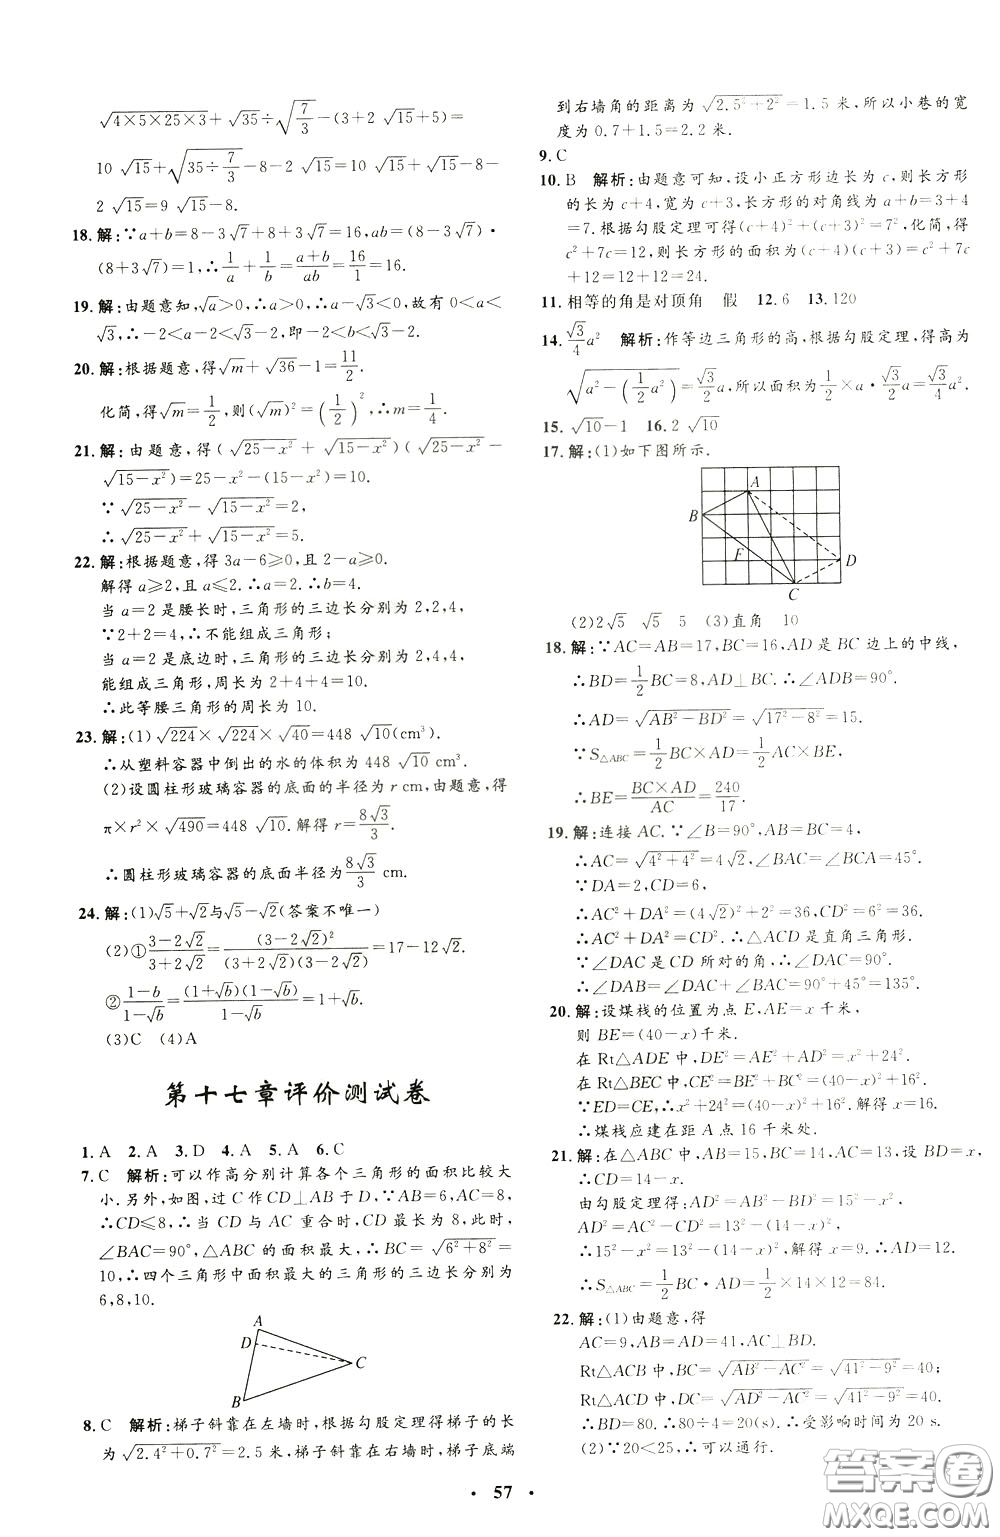 √(4×5×25×3)+√35÷√(7/3)-(3+2√15+5)=
10√15+√(35÷7/3)-8-2√15=10√15+√15-8-
2√15=9√15-8.
18.解:∵a+b=8-3√7+8+3√7=16,ab=(8-3√7)·
(8+3√7)=1,∴1/a+1/b=(a+b)/ab=16/1=16.
19.解:由题意知,√a>0,∴a>0,∴a-√3<0,故有0<a<
√3,∴-2<a-2<√3-2,即-2<b<√3-2.
20.解:根据题意,得√m+√36-1=11/2.
化简,得√m=1/2,则(√m)²=(1/2)²,∴m=1/4.
21.解:由题意,得(√(25-x²)+√(15-x²))(√(25-x²)-
√(15-x²))=25-x²-(15-x²)=10.
∵√(25-x²)-√(15-x²)=2,
∴√(25-x²)+√(15-x²)=5.
22.解:根据题意,得3a-6≥0,且2-a≥0.
解得a≥2,且a≤2.∴a=2.∴b=4.
当a=2是腰长时,三角形的三边长分别为2,2,4,
∵2+2=4,∴不能组成三角形;
当a=2是底边时,三角形的三边长分别为2,4,4,
能组成三角形,周长为2+4+4=10.
∴此等腰三角形的周长为10.
23.解:(1)√224×√224×√40=448√10(cm³).
∴从塑料容器中倒出的水的体积为448√10 cm³.
(2)设圆柱形玻璃容器的底面的半径为r cm,由题意,得
π×r²×√490=448√10.解得r=8√3/3.
∴圆柱形玻璃容器的底面半径为8√3/3 cm.
24.解:(1)√5+√2与√5-√2(答案不唯一)
(2)①(3-2√2)/(3+2√2)=(3-2√2)²/((3+2√2)(3-2√2))=17-12√2.
②(1-b)/(1-√b)=(1+√b)(1-√b)/(1-√b)=1+√b.
(3)C (4)A
第十七章评价测试卷
1.A 2.A 3.D 4.A 5.A 6.C
7.C 解析:可以作高分别计算各个三角形的面积比较大
小.另外,如图,过C作CD⊥AB于D,∵AB=6,AC=8,
∴CD≤8,∴当CD与AC重合时,CD最长为8,此时,
∠BAC=90°,△ABC的面积最大,∴BC=√(6²+8²)=
10,∴四个三角形中面积最大的三角形的三边长分别为
6,8,10.
A
D
C
B
8.C 解析:梯子斜靠在左墙时,根据勾股定理得梯子的长
为√(2.4²+0.7²)=2.5米,梯子斜靠在右墙时,梯子底端
到右墙角的距离为√(2.5²+2²)=1.5米,所以小巷的宽
度为0.7+1.5=2.2米.
9.C
10.B 解析:由题意可知,设小正方形边长为c,则长方形
的长为c+4,宽为c+3,长方形的对角线为a+b=3+4
=7.根据勾股定理可得(c+4)²+(c+3)²=7²,化简,得
c²+7c=12,则长方形的面积为(c+4)(c+3)=c²+7c
+12=12+12=24.
11.相等的角是对顶角 假 12.6 13.120
14.√3/4a² 解析:作等边三角形的高,根据勾股定理,得高为
√(a²-(1/2a²))=√3/2a,所以面积为1/2×a·√3/2a=√3/4a².
15.√10-1 16.2√10
17.解:(1)如下图所示.
A
B
F
D
C
(2)2√5 √5 5 (3)直角 10
18.解:∵AC=AB=17,BC=16,AD是BC边上的中线,
∴BD=1/2BC=8,AD⊥BC.∴∠ADB=90°.
∴AD=√(AB²-BD²)=√(17²-8²)=15.
∵S△ABC=1/2BC×AD=1/2AC×BE,
∴BE=BC×AD/AC=240/17.
19.解:连接AC.∵∠B=90°,AB=BC=4,
∴AC=√(4²+4²)=4√2,∠BAC=∠BCA=45°.
∵DA=2,CD=6,
∴AC²+DA²=(4√2)²+2²=36,CD²=6²=36.
∴AC²+DA²=CD².∴△ACD是直角三角形.
∵∠DAC是CD所对的角,∴∠DAC=90°.
∴∠DAB=∠DAC+∠BAC=90°+45°=135°.
20.解:设煤栈的位置为点E,AE=x千米,
则BE=(40-x)千米.
在Rt△ADE中,DE²=AE²+AD²=x²+24².
在Rt△BEC中,CE²=BE²+BC²=(40-x)²+16².
∵ED=CE,∴x²+24²=(40-x)²+16².解得x=16.
∴煤栈应建在距A点16千米处.
21.解:在△ABC中,AB=15,BC=14,AC=13,设BD=x,
∴CD=14-x.
由勾股定理得:AD²=AB²-BD²=15²-x²,
AD²=AC²-CD²=13²-(14-x)².
∴15²-x²=13²-(14-x)².解得x=9.∴AD=12.
∴S△ABC=1/2BC·AD=1/2×14×12=84.
22.解:(1)由题意,得
AC=9,AB=AD=41,AC⊥BD.
Rt△ACB中,BC=√(AB²-AC²)=√(41²-9²)=40;
Rt△ACD中,DC=√(AD²-AC²)=√(41²-9²)=40,
∴BD=80.∴80÷4=20(s).∴受影响时间为20 s.
(2)∵20<25,∴可以通行.
· 57 ·
答案圈
MXQE.COM